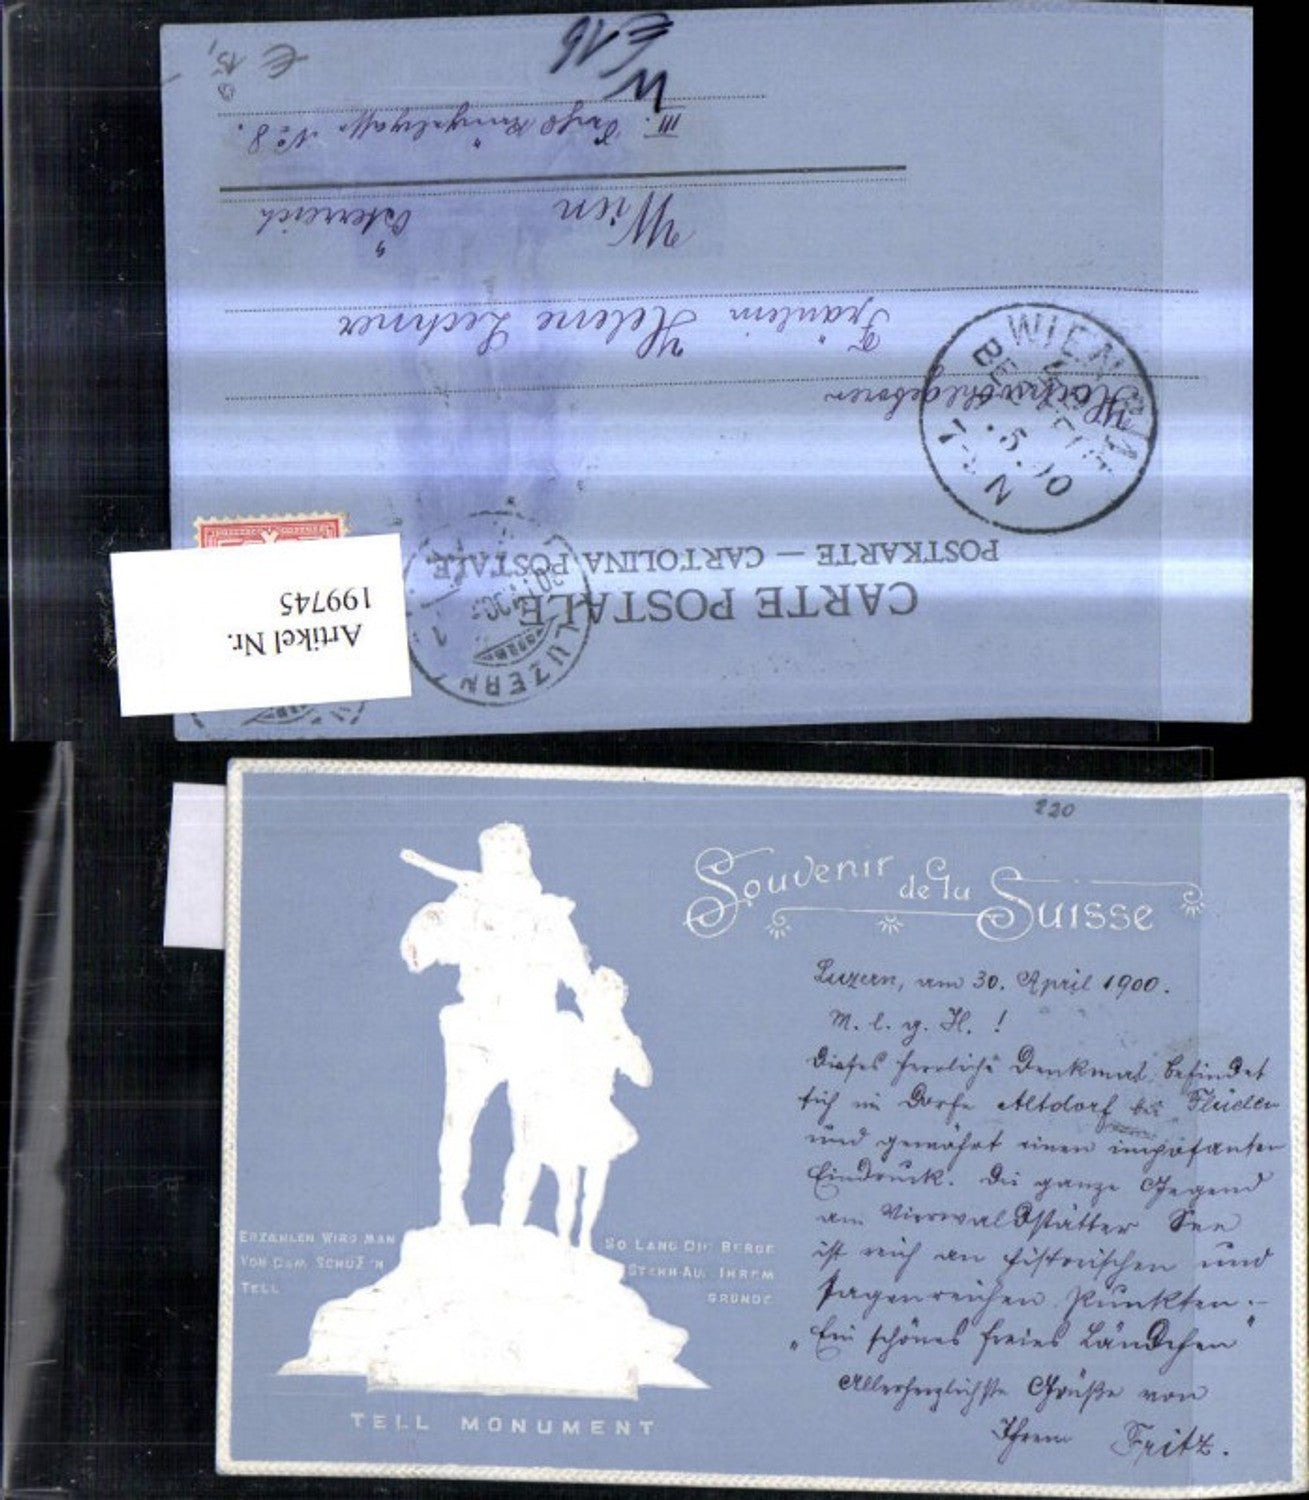 CARTE POSTALE
POSTKARTE — CARTOLINA POSTALE
Hochwohlgeboren
Fräulein Helene Lechner
Wien Österreich
III. No 8.
W
€ 16
€ 15,
WIEN
BESTELLT
.5.00
7 N
LUZERN
Artikel Nr.
199745
220
Souvenir de la Suisse
Luzern, am 30. April 1900.
M. l. g. H. !
Dieses herrliche Denkmal befindet
sich im Dorfe Altdorf bei Flüelen
und gewährt einen imposanten
Eindruck. Die ganze Gegend
am Vierwaldstätter See
ist reich an historischen und
sagenreichen Punkten.–
„Ein schönes freies Ländchen“
Allerherzlichste Grüße von
Ihrem Fritz.
ERZÄHLEN WIRD MAN
VON DEM SCHÜTZ'N
TELL
SO LANG DIE BERGE
STEHN AUF IHREM
GRUNDE
TELL MONUMENT